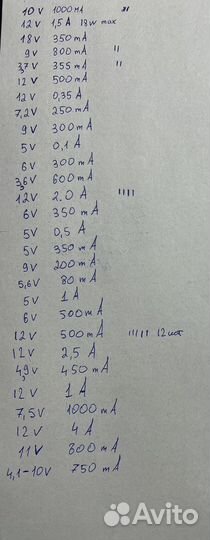 10 V 1000 mA "
12 V 1,5 A 18 W max
18 V 350 mA
9 V 800 mA "
3,7 V 355 mA "
12 V 500 mA
12 V 0,35 A
7,2 V 250 mA
9 V 300 mA
5 V 0,1 A
6 V 300 mA
3,6 V 600 mA
12 V 2.0 A ıııı
6 V 350 mA
5 V 0,5 A
5 V 350 mA
9 V 200 mA
5,6 V 80 mA
5 V 1 A
6 V 500 mA
12 V 500 mA ııııı 12 шт
12 V 2,5 A
4,9 V 450 mA
12 V 1 A
7,5 V 1000 mA
12 V 4 A
11 V 800 mA
4,1-10 V 750 mA
Avito